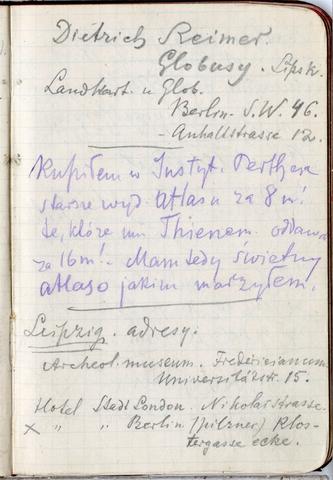 Dietrich Reimer.
Globusy. Lipsk.
Landkart. u Glob.
Berlin. S.W. 46.
- Anhaltstrasse 12.
Kupiłem w Instyt. Perthesa
starsze wyd. atlasu za 8 m!
te, które mi Thienem. oddawał
za 16 m! - Mam tedy świetny
atlas o jakim marzyłem.
Leipzig. adresy.
Archeol. museum. Fredericianum
Universitätstr. 15.
Hotel Stadt London. Nikolaistrasse.
x " " Berlin (pilzner) Klos-
tergasse ecke.